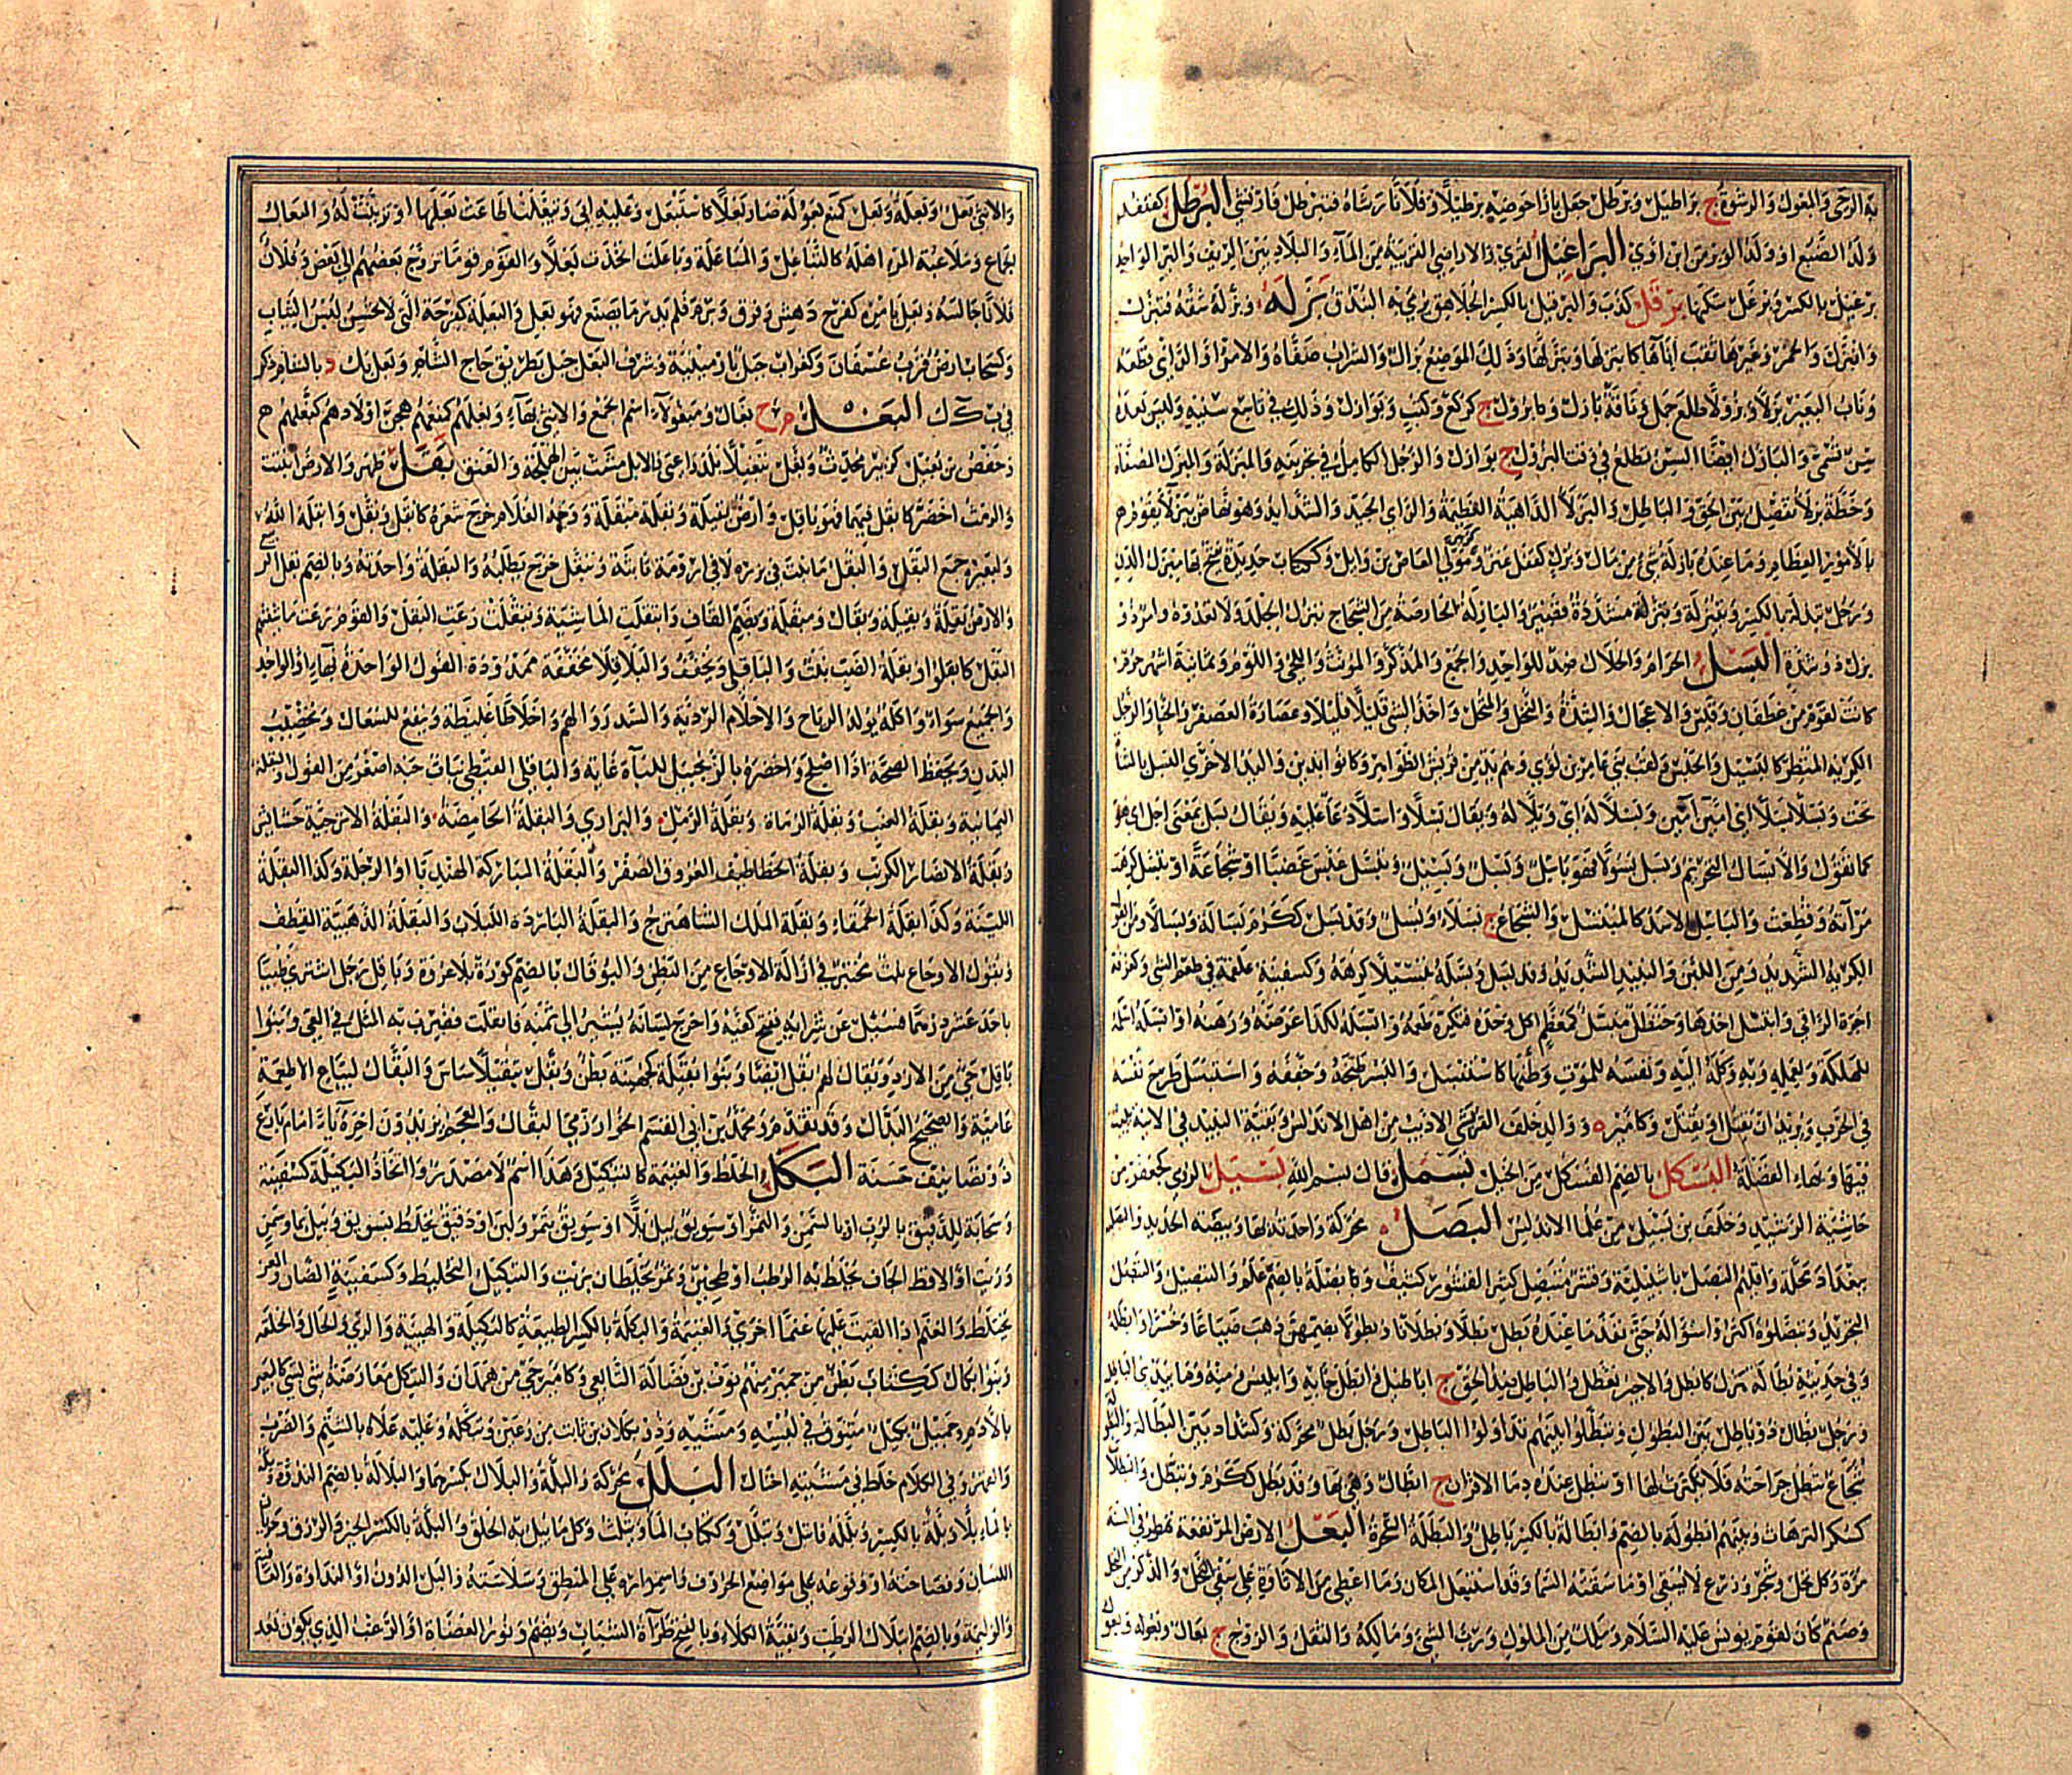 به الرحى والمعول والرشوة ج براطيل وبرطل جعل بازاء حوضه برطيلا وفلانا رشاه فتبرطل فارتشى البرطل كقنفذ
ولد الضبع او ولد الوبر من ابن اوى البراغيل القرى والاراضي القريبة من الماء والبلاد بين الريف والبر الواحد
برغيل بالكسر وبرغل سكنها برقل كذب والبرقيل بالكسر الجلاهق يرمى به البندق بزله وبزله شقه فتبزل
وانبزل والخمر وغيرها ثقب اناءها كابتزلها وتبزلها وذلك الموضع بزال والشراب صفاه والامر او الراي قطعه
وناب البعير بزلا وبزولا طلع جمل وناقة بازل وبزول ج كركع وكتب وبوازل وذلك في تاسع سنيه وليس بعده
سن تسمى والبازل ايضا السن تطلع في وقت البزول ج بوازل والرجل الكامل في تجربته والمبزلة والمبزل المصفاة
وخطة بزلاء تفصل بين الحق والباطل والبزلاء الداهية العظيمة والراي الجيد والشدائد وهو نهاض ببزلاء يقوم
بالامور العظام وما عنده بازلة شيء من مال وبزل كقفل عنز ومولى العاص بن وايل وككتاب حديدة يفتح بها مبزل الدن
ورجل تبزلة بالكسر وتبزيلة وتبزلة مشددة قصير والبازلة الحارصة من الشجاج تبزل الجلد ولا تعدوه وامر ذو
بزل ذو شدة البسل الحرام والحلال ضد للواحد والجمع والمذكر والمؤنث واللحى واللوم وثمانية اشهر حرم
كانت لقوم من غطفان وقيس والاعجال والشدة والنخل بالمنخل واخذ الشيء قليلا قليلا وعصارة العصفر والحناء والرجل
الكريه المنظر كالبسيل والحبس ولقب بني عامر بن لؤي وهم يد من قريش الظواهر وكانوا يدين واليد الاخرى اليسل بالمثناة
تحت وبسلا بسلا اي امين امين وبسلا له اي ويلا له ويقال بسلا واسلا دعاء عليه ويقال بسل بمعنى اجل اي هو
كما تقول والابسال التحريم وبسل بسولا فهو باسل وبسل وبسيل وتبسل عبس غضبا او شجاعة او تبسل كرهت
مرآته وفظعت والباسل الاسد كالمبتسل والشجاع ج بسلاء وبسل وقد بسل ككرم بسالة وبسالا ومن القول
الكريه الشديد ومن اللبن والنبيذ الشديد وقد بسل وبسله تبسيلا كرهه وكسفينة علقمة في طعم الشيء وكغرفة
اجرة الراقي وابتسل اخذها وحنظل مبسل كمعظم اكل وحده فتكره طعمه وابسله لكذا عرضه ورهنه او ابسله اسلمه
للهلكة وبعمله وبه وكله اليه ونفسه للموت وطنها كاستبسل والبسر طبخه وجففه واستبسل طرح نفسه
في الحرب ويريد ان يقتل او يقتل وكامير ة ووالد خلف القرشي الاديب من اهل الاندلس وبقية النبيذ في الانية يبيت
فيها وبهاء الفضلة البسكل بالضم الفسكل من الخيل بسمل قال بسم الله بسبيل الردي كجعفر من
حاشية الرشيد وخلف بن بسيل من علماء الاندلس البصل محركة واحدته بهاء وبيضة الحديد والبصلية
ببغداد محلة واقليم البصل باشبيلية وقشر متبصل كثير القشور كثيف وكبصلة بالضم علم والتبصيل والتبصل
التجريد وتبصلوه اكثروا سؤاله حتى نفد ما عنده بطل بطلا وبطلانا وبطولا بضمهن ذهب ضياعا وخسرا وابطله
وفي حديثه بطالة هزل كابطل والاجير تعطل والباطل ضد الحق ج اباطيل وابطل جاء به وابليس ومنه وما يبدئ الباطل
ورجل بطال ذو باطل بين البطول وتبطلوا بينهم تداولوا الباطل ورجل بطل محركة وكشداد بين البطالة والبطولة
شجاع تبطل جراحته فلا يكترث لها او تبطل عنده دماء الاقران ج ابطال وهي بهاء وقد بطل ككرم وتبطل والبطلات
كسكر الترهات وبينهم ابطولة بالضم وابطالة بالكسر باطل والبطلة السحرة البعل الارض المرتفعة تمطر في السنة
مرة وكل نخل وشجر وزرع لا يسقى او ما سقته السماء وقد استبعل المكان وما اعطي من الاتاوة على سقي النخل والذكر من النخل
وصنم كان لقوم يونس عليه السلام وملك من الملوك ورب الشيء ومالكه والثقل والزوج ج بعال وبعولة وبعول
والانثى بعل وبعلة وبعل كمنع بعولة صار بعلا كاستبعل وعليه ابى وتبعلت اطاعت بعلها او تزينت له والبعال
الجماع وملاعبة المرء اهله كالتباعل والمباعلة وباعلت اتخذت بعلا والقوم قوما تزوج بعضهم الى بعض وفلان
فلانا جالسه وبعل بامره كفرح دهش وفرق وبرم فلم يدر ما يصنع فهو بعل والبعلة كفرحة التي لا تحسن لبس الثياب
وكسحاب ارض قرب عسفان وكغراب جبل بارمينية وشرف البعل جبل بطريق حاج الشام وبعلبك د بالشام وذكر
في ب ك ك البغل م ج بغال ومبغولاء اسم الجمع والانثى بهاء وبغلهم كمنعهم هجن اولادهم كبغلهم
وحفص بن بغيل كزبير محدث وبغل تبغيلا بلد واعيا والابل مشت بين الهملجة والعنق بقل ظهر والارض انبتت
والرمث اخضر كابقل فيهما فهو باقل وارض بقيلة وبقلة مبقلة ووجه الغلام خرج شعره كابقل وبقل وابقله الله
ولبعيره جمع البقل والبقل ما نبت في بزره لا في ارومة ثابتة وتبقل خرج يطلبه والبقلة واحدته وبالضم بقل الربيع
والارض بقلة وبقيلة وبقالة ومبقلة وبضم القاف وابتقلت الماشية وتبقلت رعت البقل والقوم رعت ماشيتهم
البقل كابقلوا وبقلة الضب نبت والباقلى ويخفف والباقلاء مخففة ممدودة الفول الواحدة بهاء او الواحد
والجميع سواء واكله يولد الرياح والاحلام الردية والسدر والهم واخلاطا غليظة وينفع للسعال وتخصيب
البدن ويحفظ الصحة اذا اصلح واخضره بالزنجبيل للباءة غاية والباقلى القبطي نبات حبه اصغر من الفول والبقلة
اليمانية وبقلة الضب وبقلة الرماة وبقلة الرمل والبراري والبقلة الحامضة والبقلة الاترجية حشائش
وبقلة الانصار الكرنب وبقلة الخطاطيف العروق الصفر والبقلة المباركة الهندبا او الرجلة وكذا البقلة
اللينة وكذا بقلة الحمقاء وبقلة الملك الشاهترج والبقلة الباردة اللبلاب والبقلة الذهبية القطف
وبقول الاوجاع نبت مختبر في ازالة الاوجاع من البطن والبوقال بالضم كوز بلا عروة وباقل رجل اشترى ظبيا
باحد عشر درهما فسئل عن شرائه ففتح كفيه واخرج لسانه يشير الى ثمنه فانفلت فضرب به المثل في العي وبنو
باقل حي من الازد ويقال لهم بقل ايضا وبنو بقيلة كجهينة بطن وبقل تبقيلا ساس والبقال لبياع الاطعمة
عامية والصحيح البدال وقد تقدم ومحمد بن ابي القاسم الخوارزمي البقال والعجم يزيدون اخره ياء امام بارع
ذو تصانيف حسنة البكل الخلط والغنيمة كالتبكيل وهذا اسم لا مصدر واتخاذ البكيلة كسفينة
وسحابة للدقيق بالرب او بالسمن والتمر او سويق يبل بلا او سويق بتمر ولبن او دقيق يخلط بسويق ويبل بماء وسمن
وزيت او الاقط الجاف يخلط به الرطب او طحين وتمر يخلطان بزيت والتبكيل التخليط وكسفينة الضان والمعز
تختلط والغنم اذا القيت عليها غنما اخرى والغنيمة والبكلة بالكسر الطبيعة كالبكيلة والهيئة والزي والحال والخلقة
وبنو بكال ككتاب بطن من حمير منهم نوف بن فضالة التابعي وكامير حي من همدان والتبكل معارضة شيء بشيء كالبعير
بالادم وجميل بكيل متنوق في لبسه ومشيه وذو بكلان بن ثابت من رعين وتبكله وعليه علاه بالشتم والضرب
والقهر وفي الكلام خلط في مشيته اختال البلل محركة والبلة والبلال بكسرهما والبلالة بالضم الندوة وبله
بالماء بلا وبلة بالكسر وبلله فابتل وتبلل وككتاب الماء ويثلث وكل ما يبل به الحلق والبلة بالكسر الخير والرزق وجريان
اللسان وفصاحته او وقوعه على مواضع الحروف واستمراره على المنطق وسلاسته والبلل الدون او النداوة والعافية
والوليمة وبالضم ابتلال الرطب وبقية الكلاء وبالفتح طراءة الشباب ويضم ونور العضاة او الزغب الذي يكون بعد